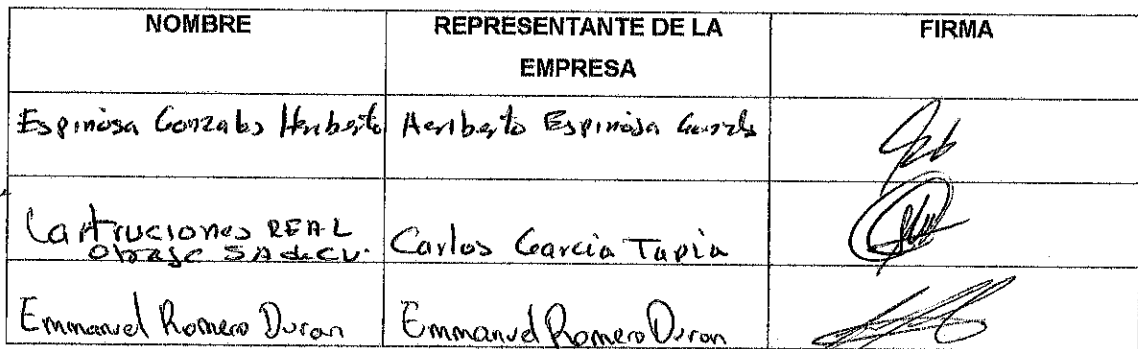 NOMBRE
REPRESENTANTE DE LA
EMPRESA
FIRMA
Espinosa Gonzales Heriberto
Heriberto Espinosa Gonzals
REAL
SA de CV.
Carlos García Tapia
Emmanuel Romero Duron
Emmanuel Romero Duron